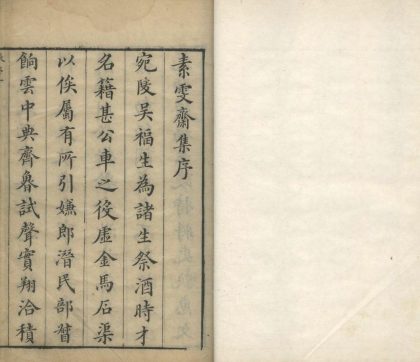 素雯齋集序
宛陵吳福生為諸生祭酒時才
名籍甚公車之役虛金馬石渠
以俟屬有所引嫌郎潛民部督
餉雲中典齊魯試聲實翔洽積